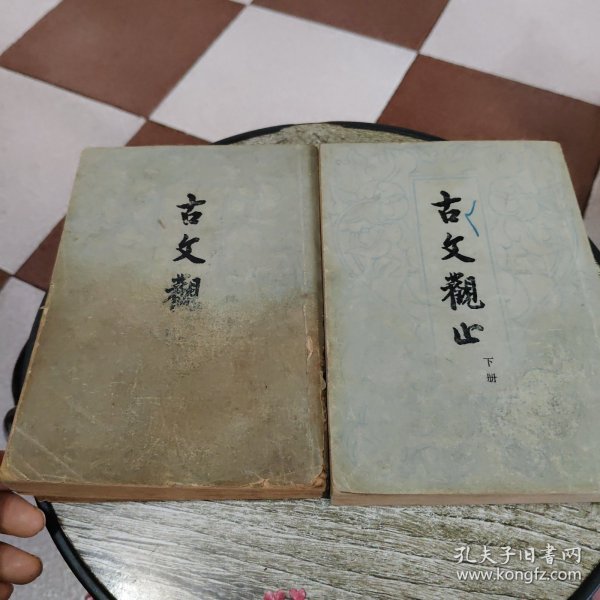 古文觀
古文觀止
下册
孔夫子旧书网
www.kongfz.com